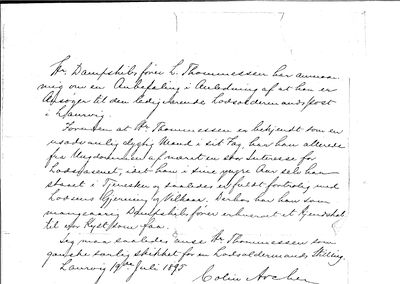 Hr. Dampskibsfører L. Thommessen har anmodet
mig om en Anbefaling i Anledning af at han er
Ansøger til den ledigværende Lodsoldermandspost
i Laurvig.
Foruden at Hr. Thommessen er bekjendt som en
usædvanlig dygtig Mand i sit Fag, har han allerede
fra Ungdommen af næret en stor Interesse for
Lodsvæsenet, idet han i sine yngre Aar selv har
staaet i Tjenesten og saaledes er fuldt fortrolig med
Lodsens Gjerning og Vilkaar. Derhos har han som
mangeaarig Dampskibsfører erhvervet et Kjendskab
til vor Kyst som faa.
Jeg maa saaledes anse Hr. Thommessen som
ganske særlig skikket for en Lodsoldermands Stilling.
Laurvig 19de Juli 1895
Colin Archer